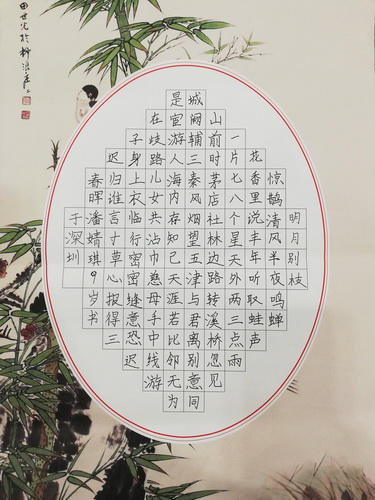 明月别枝
惊鹊清风半夜鸣蝉
花香里说丰年听取蛙声
一片七八个星天外两三点雨
山前时茅店社林边路转溪桥忽见
城阙辅三秦风烟望五津与君离别意同
是宦游人海内存知己天涯若比邻无为
在歧路儿女共沾巾慈母手中线游
子身上衣临行密密缝意恐迟
迟归谁言寸草心报得三
春晖潘婧琪9岁书
于深圳
田世光於柳浪庄